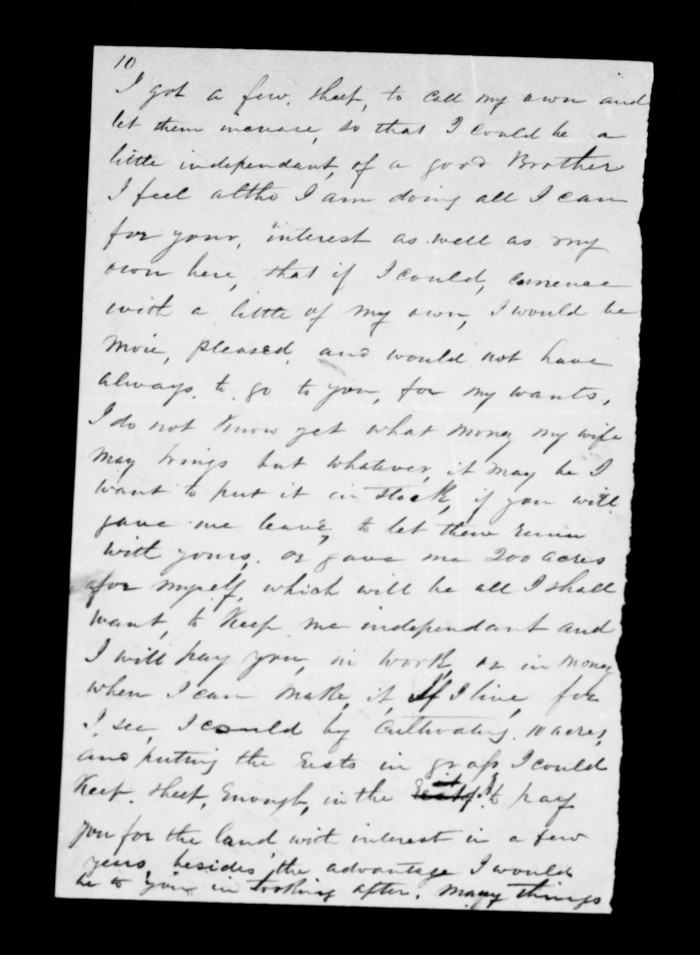 10
I got a few, sheep, to call my own and
let them increase, so that I could be a
little independant, of a good Brother
I feel altho I am doing all I can
for your, interest as well as my
own here, that if I could, comence
with a little of my own, I would be
more, pleased, and would not have
always. to go to you, for my wants,
I do not know yet what money my wife
may brings but whatever, it may be I
want to put it in stock, if you will
gave me leave, to let them runn
with yours, or gave me 200 acres
for myself, which will be all I shall
want, to Keep me independant and
I will pay you, in work, or in money
when I can make, it, If I live, for
I, see, I could by Cultivating. 10 acres,
and putting the rests in grass I could
Keep. sheep, Enough, in the to pay
you for the land with interest in a few
years, besides, the advantage I would
be to you in looking after, many things